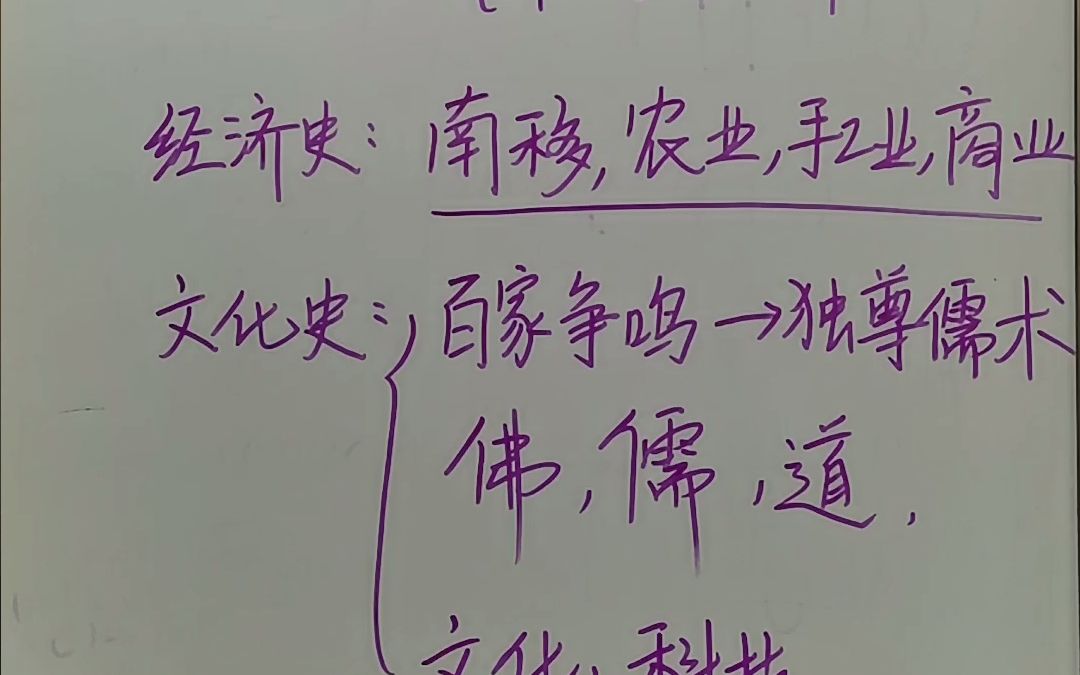 经济史：南移，农业，手工业，商业
文化史：百家争鸣→独尊儒术
佛，儒，道．
文化，科技